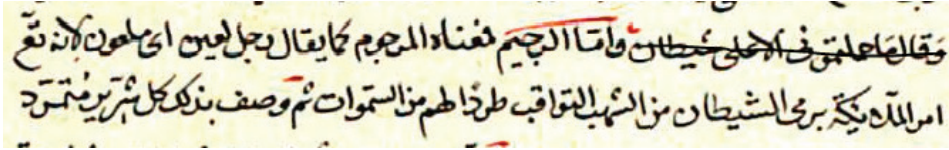 وقال لها حلمتمو فى الاعلى شيطان واما الرجيم فمعناه المرجوم كما يقال رجل لعين اى ملعون لانه تع
امر الملائكة برمى الشيطان من الشهب الثواقب طردا لهم من السموات ثم وصف بذلك كل شرير متمرد